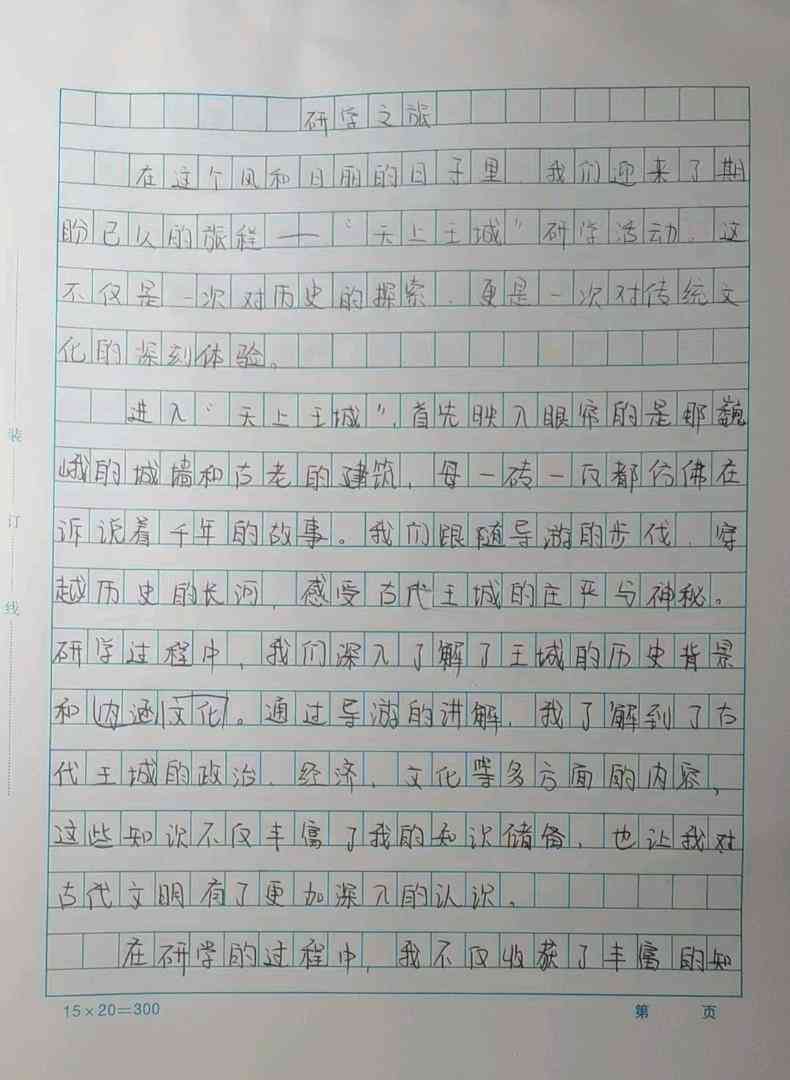 研学之旅
在这个风和日丽的日子里，我们迎来了期
盼已久的旅程——“天上王城”研学活动，这
不仅是一次对历史的探索，更是一次对传统文
化的深刻体验。
进入“天上王城”，首先映入眼帘的是那巍
峨的城墙和古老的建筑，每一砖一瓦都仿佛在
诉说着千年的故事。我们跟随导游的步伐，穿
越历史的长河，感受古代王城的庄严与神秘。
研学过程中，我们深入了解了王城的历史背景
和内涵文化。通过导游的讲解，我了解到了古
代王城的政治、经济、文化等多方面的内容，
这些知识不仅丰富了我的知识储备，也让我对
古代文明有了更加深入的认识。
在研学的过程中，我不仅收获了丰富的知
15×20=300
第 页
装
订
线